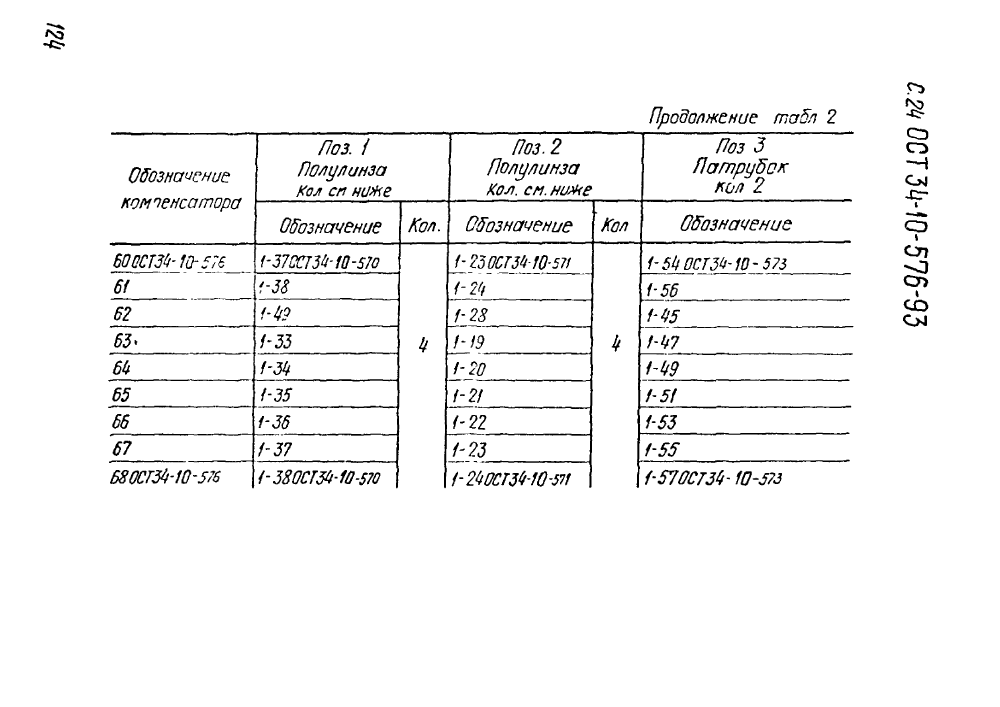 124
С.24 ОСТ 34-10-576-93
Продолжение табл 2
Обозначение компенсатора
Поз. 1 Полулинза Кол см ниже
Поз. 2 Полулинза Кол. см. ниже
Поз 3 Патрубок кол 2
Обозначение Кол. Обозначение Кол Обозначение
60 ОСТ34-10-576 1-37ОСТ34-10-570 4 1-23ОСТ34-10-571 4 1-54 ОСТ34-10-573
61 1-38 1-24 1-56
62 1-49 1-28 1-45
63 1-33 1-19 1-47
64 1-34 1-20 1-49
65 1-35 1-21 1-51
66 1-36 1-22 1-53
67 1-37 1-23 1-55
68 ОСТ34-10-576 1-38ОСТ34-10-570 1-24ОСТ34-10-571 1-57ОСТ34-10-573